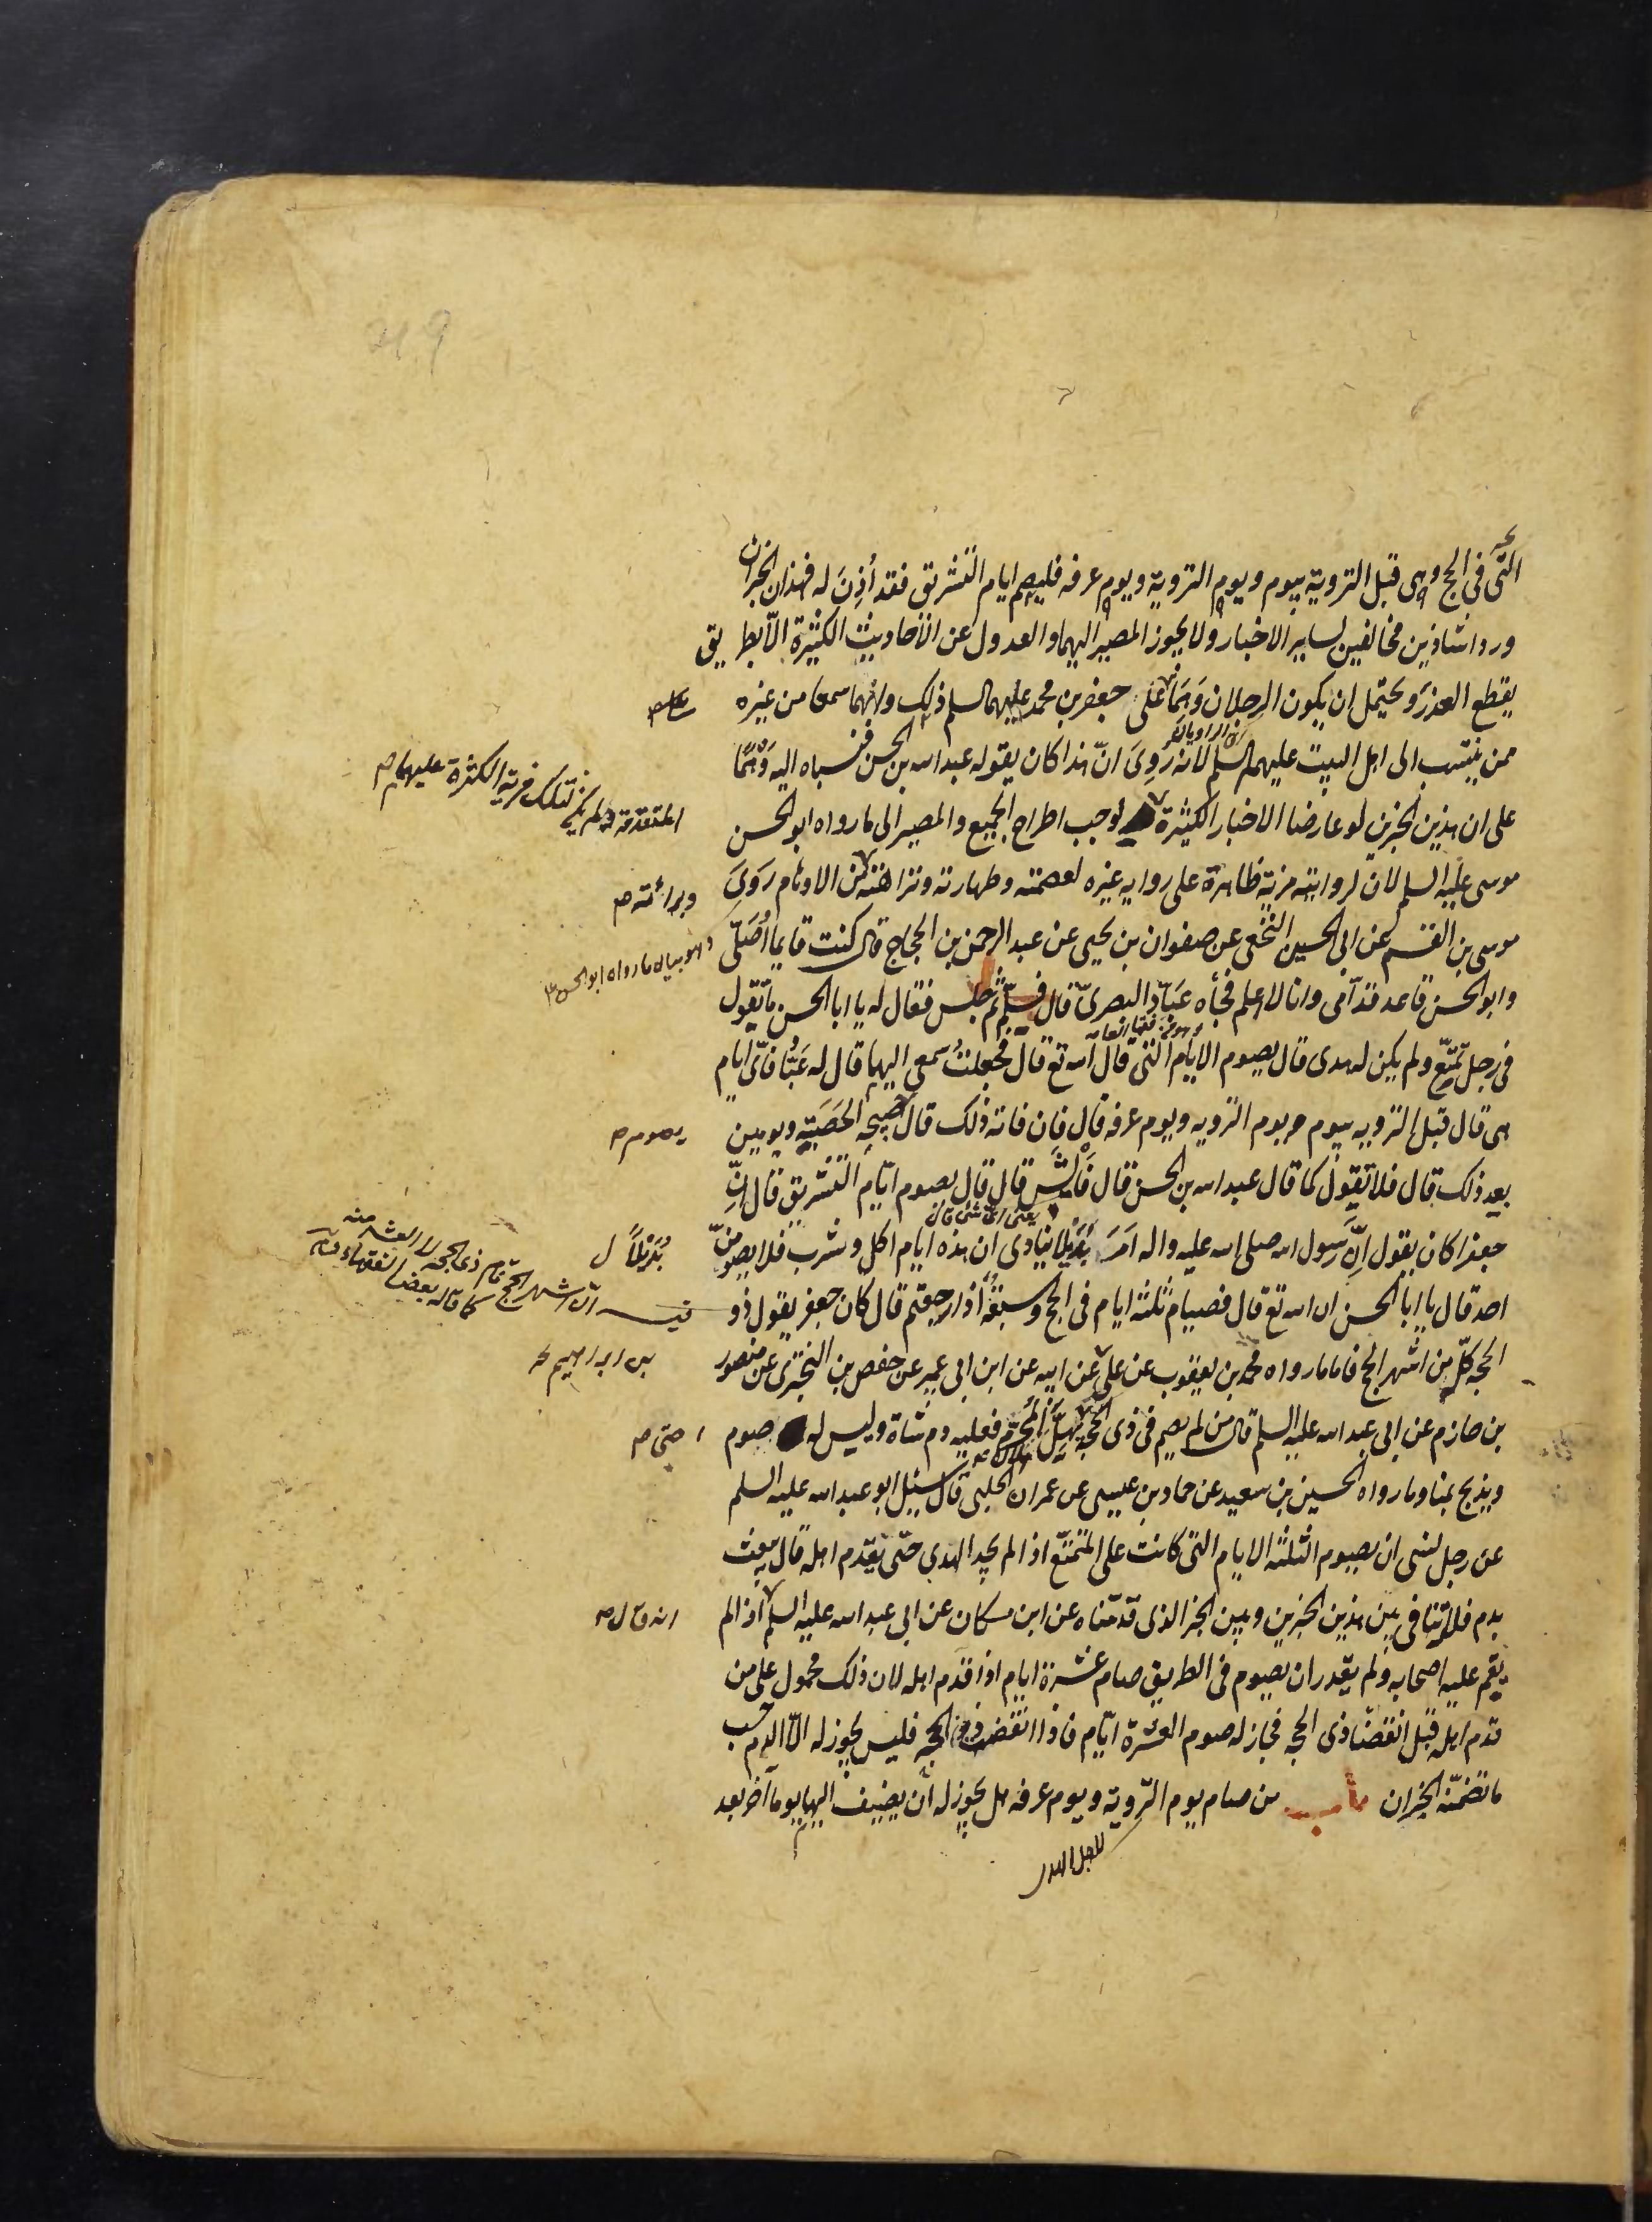 التى فى الحج وهى قبل التروية بيوم ويوم التروية ويوم عرفه فليصم ايام التشريق فقد أُذِنَ له فهذان الخبران
وردا شاذين مخالفين لساير الاخبار ولا يجوز المصير اليهما والعدول عن الأحاديث الكثيرة الّا بطريق
يقطع العذر ويحتمل ان يكون الرجلان وَهِمَا على جعفر بن محمد عليهما السلم ذلك وانهما سمعا من غيره
ممن ينتسب الى اهل البيت عليهم السلم لانه رَوِىَ انّ هذا كان يقوله عبد الله بن الحسن فنسباه اليه وَهْمًا
على ان هذين الخبرين لو عارضا الاخبار الكثيرة لوجب اطراح الجميع والمصير الى ما رواه ابو الحسن
المتقدمة ولم يكن لتلك مزية الكثرة عليهما م
موسى عليه السلم لان لروايته مزية ظاهرة على رواية غيره لعصمته وطهارته ونزاهته من الاوهام رَوَىَ
وبرائته م
موسى بن القسم عن ابى الحسين النخعى عن صفوان بن يحيى عن عبد الرحمن بن الحجاج قال كنت قايما اُصَلّى
وهو بيان ما رواه ابو الحسن
وابو الحسن قاعد قدّامى وانا لا اعلم فجأه عَبّاد البصرىّ قال فسلّم ثم جلس فقال له يا ابا الحسن ما تقول
فى رجل تمتّع ولم يكن له هدى قال يصوم الايام التى قال الله تع قال فجعلتُ سمعى اليهما قال له عَبّاد فاىّ ايام
هى قال قبل الترويه بيوم ويوم الترويه ويوم عرفه قال فان فاته ذلك قال صبيحة الحَصَبَة ويومين
يصوم م
بعد ذلك قال فلا تقول كما قال عبد الله بن الحسن قال فَأيْش قال قال يصوم ايّام التشريق قال إنِّ
يعنى اىّ شئ قال
جعفرا كان يقول اِنَّ رَسول الله صلى الله عليه واله امَرَ بُدَيْلًا ينادى ان هذه ايام اكل وشرب فلا يصومنّ
بُدَيْلاً ل
احد قال يا ابا الحسن ان الله تع قال فصيام ثلثه ايام فى الحج وسبعة اذا رجعتم قال كان جعفر يقول ذو
فيه انّ اشهر الحج تمام ذى الحجه لا العشر منه
كما قاله بعض الفقهاء
الحجه كلّه من اشهر الحج فاما ما رواه محمد بن يعقوب عن علىّ عن ابيه عن ابن ابى عمير عن حفص بن البخترى عن منصور
بن ابراهيم
بن حازم عن ابى عبد الله عليه السلم قال من لم يصم فى ذى الحجه يُهِلَّ المحرّم فعليه دم شاة وليس له صوم
حتى م
ويذبح بمنا وما رواه الحسين بن سعيد عن حماد بن عيسى عن عمران الحلبى قال سئل ابو عبد الله عليه السلم
عن رجل نسى ان يصوم الثلثه الايام التى كانت على المتمتّع اذا لم يجد الهدى حتى يقدم اهله قال يبعث
بدم فلا تنافى بين هذين الخبرين وبين الخبر الذى قدّمناه عن ابن مسكان عن ابى عبد الله عليه السلم اذا لم
انه قال م
يقم عليه اصحابه ولم يقدر ان يصوم فى الطريق صام عشرة ايام اذا قدم اهله لان ذلك محمول على من
قدم اهله قبل انقضا ذى الحجه فجاز له صوم العشرة ايّام فاذا انقضى ذو الحجه فليس يجوز له الّا الدم حسب
ما تضمّنه الخبران باب من صام يوم التروية ويوم عرفه هل يجوز له أن يضيف اليهما يوما آخر بعد